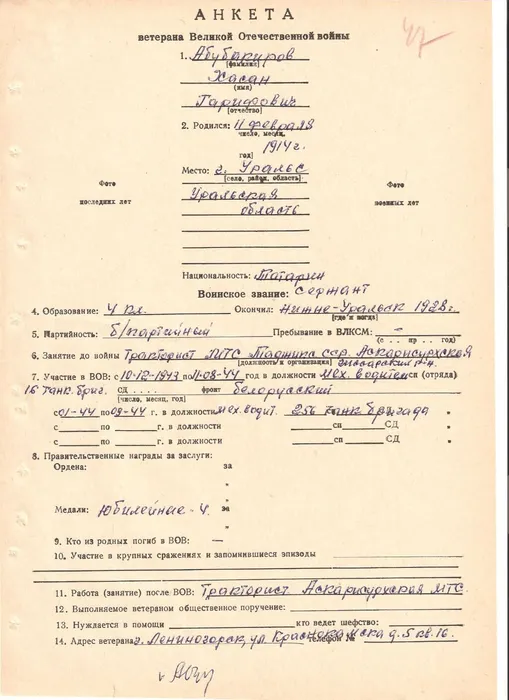 АНКЕТА
47
ветерана Великой Отечественной войны
1. Абубакиров
(фамилия)
Хасан
(имя)
Гарифович
(отчество)
2. Родился: 11 февраля
число, месяц,
1914 г.
год)
Место: г. Уральс
(село, район, область)
Уральская
область
Фото
последних лет
Фото
военных лет
Национальность: Татарин
Воинское звание: Сержант
4. Образование: 4 кл. Окончил: Нижне-Уральск 1928 г.
(где и когда)
5. Партийность: б/партийный Пребывание в ВЛКСМ: –
(с . . пр . . год)
6. Занятие до войны Тракторист МТС Таджикс. сср.
(должность и организация) Гиссарский р-н.
7. Участие в ВОВ: с 10-12-1943 по 11-08-44 год в должности мех. водителя (отряда)
16 танк. бриг. СД фронт белорусский
(число, месяц, год)
с 01-44 по 09-44 г. в должности мех. водит. 256 танк бригада "
с по г. в должности сп СД "
с по г. в должности сп СД "
8. Правительственные награды за заслуги:
Ордена: за
"
"
Медали: Юбилейные - 4. за
"
9. Кто из родных погиб в ВОВ: —
10. Участие в крупных сражениях и запомнившиеся эпизоды
11. Работа (занятие) после ВОВ: Тракторист МТС.
12. Выполняемое ветераном общественное поручение:
13. Нуждается в помощи кто ведет шефство:
14. Адрес ветерана г. Лениногорск, ул. д. 5 кв. 16.
телефон №